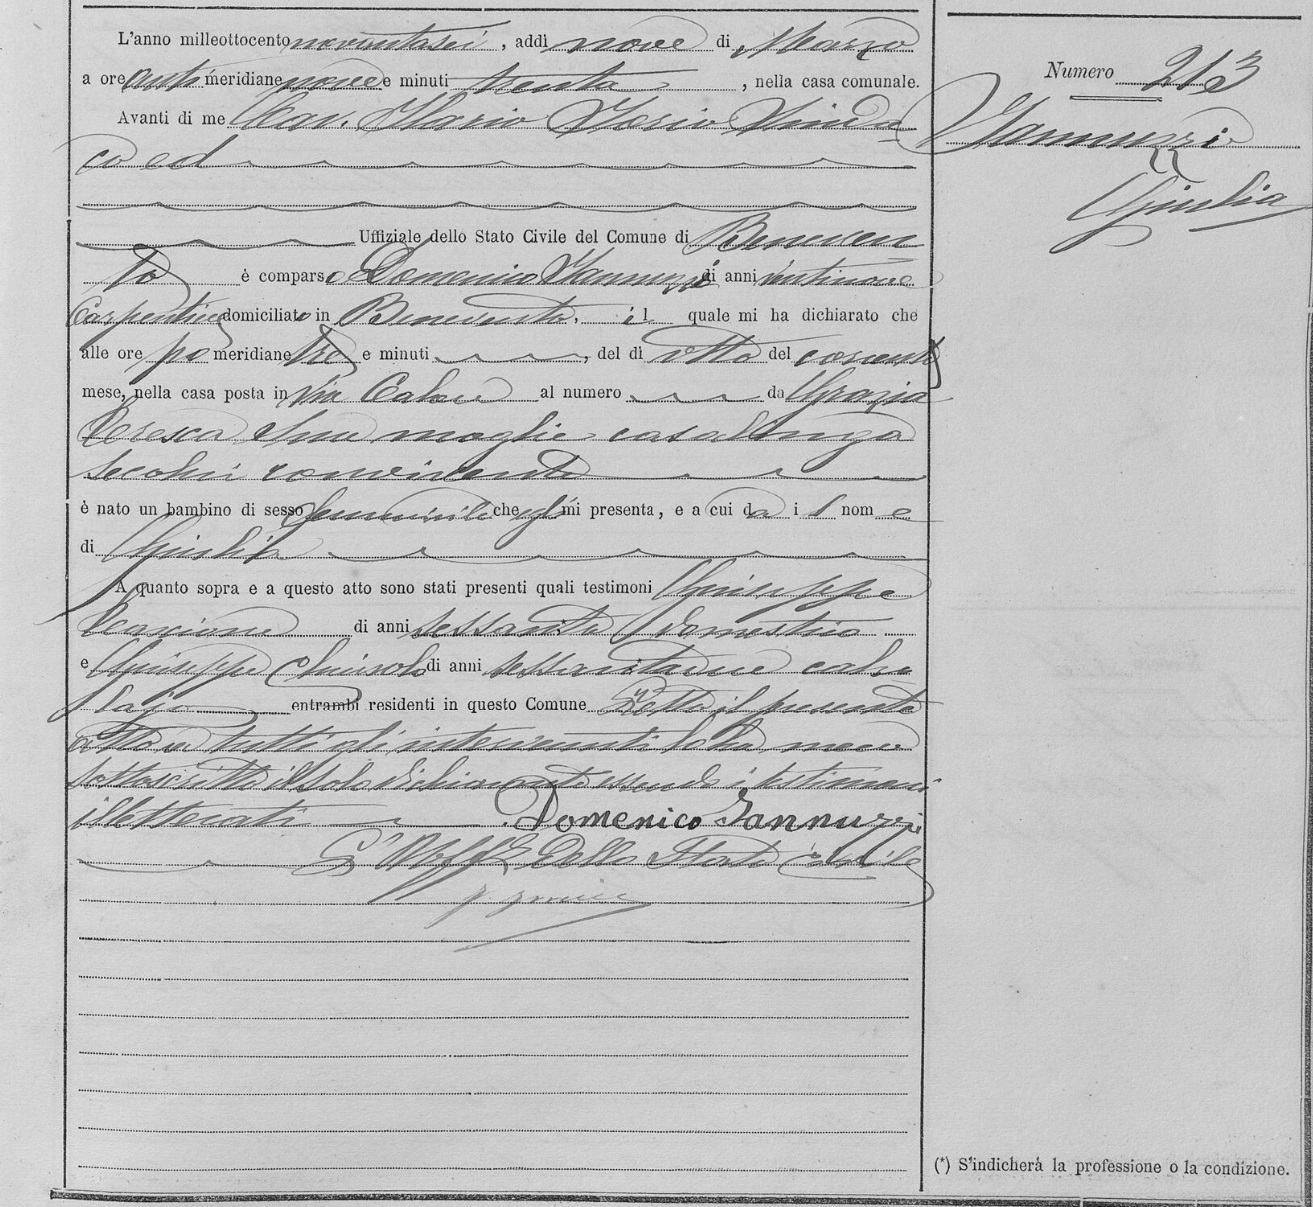 L'anno milleottocento novantasei, addì nove di Marzo
a ore anti meridiane nove e minuti trenta, nella casa comunale.
Avanti di me Cav. Ilario Isernio Sinda-
co ed
Uffiziale dello Stato Civile del Comune di Beneven
to è comparso Domenico Iannuzzi di anni ventinove
Carpentiere domiciliato in Benevento, il quale mi ha dichiarato che
alle ore po meridiane tre e minuti, del dì otto del corrente
mese, nella casa posta in via al numero da Grazia
sua moglie casalinga
secolui convivente
è nato un bambino di sesso femminile che egli mi presenta, e a cui da il nome
di Giulia
A quanto sopra e a questo atto sono stati presenti quali testimoni Giuseppe
di anni sessanta domestico
e Giuseppe di anni calzo
laio entrambi residenti in questo Comune Letto il presente
atto a tutti gli intervenuti l'ha meco
sottoscritto il solo dichiarante essendo i testimoni
illetterati Domenico Iannuzzi
L'Uff. dello Stato Civile
Numero 213
Iannuzzi
Giulia
(*) S'indicherà la professione o la condizione.